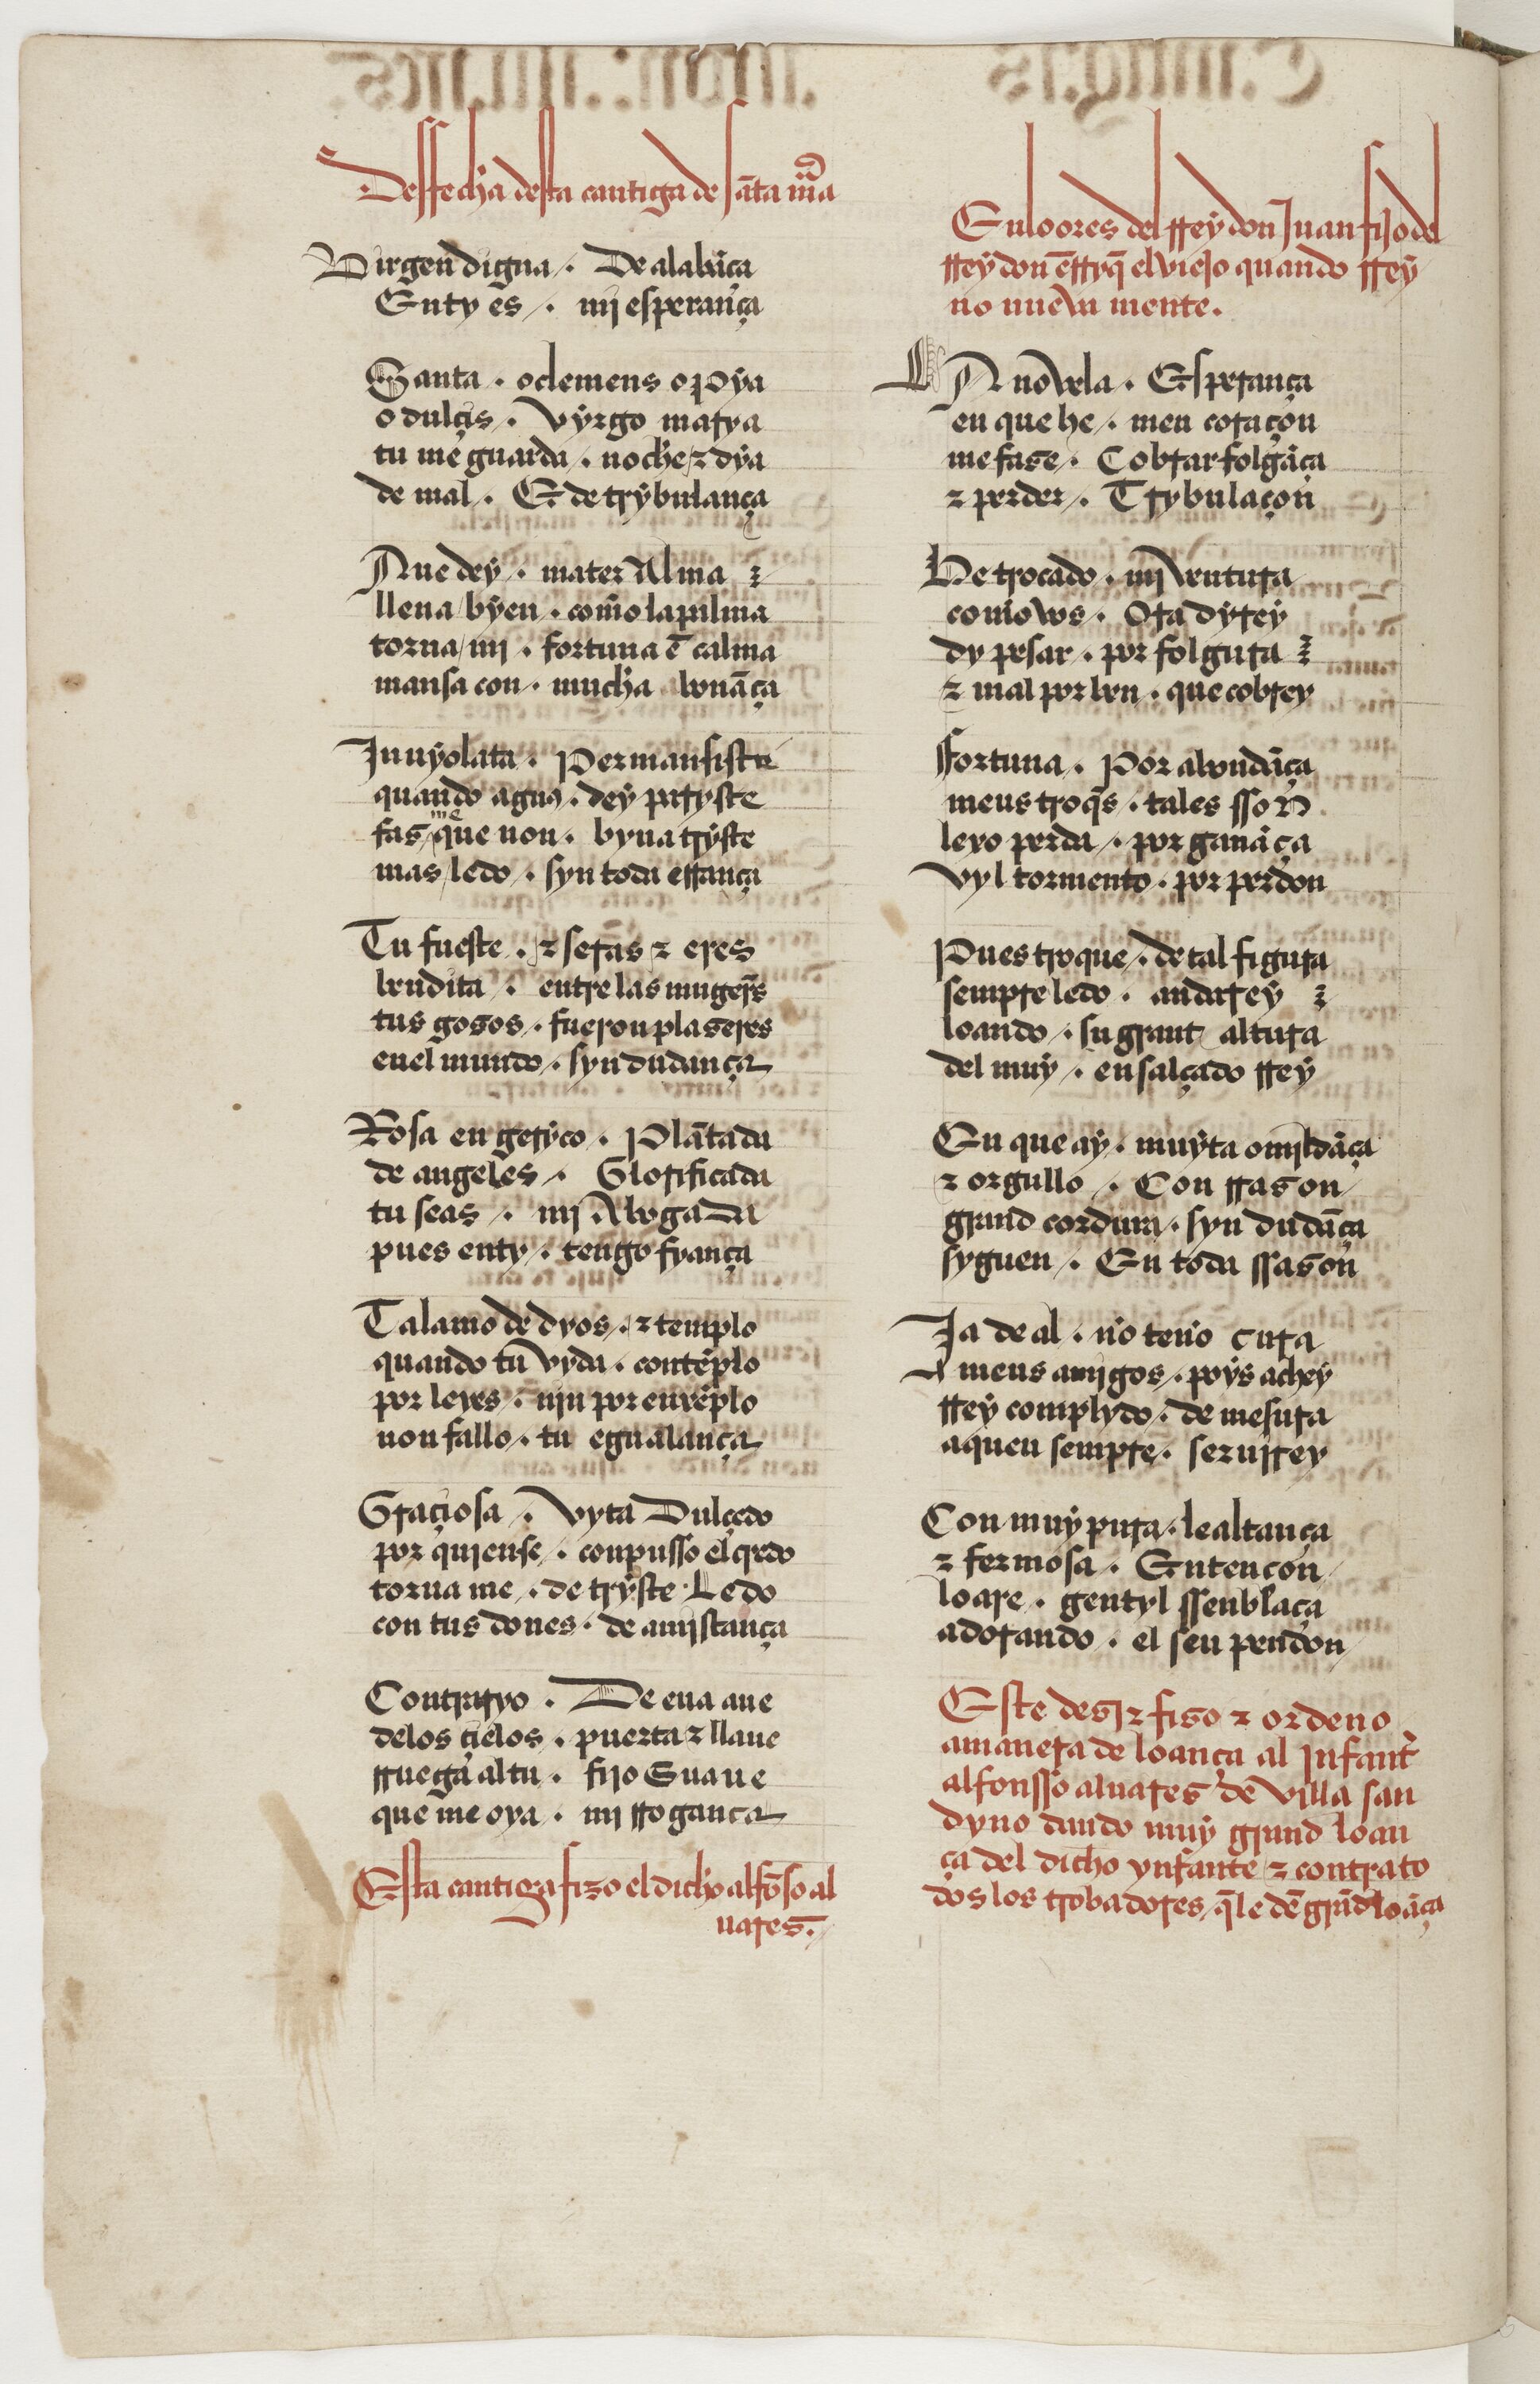 Desfecha desta cantiga de sāta mīa
Virgen digna . De alabāça
En ty es . mj esperança
Santa . o clemens o pya
o dulçis . vyrgo marya
tu me guarda . noche τ dya
de mal . E de trybulança
Aue dey . mater Alma
llena byen . commo la palma
torna mj . fortuna ē calma
mansa con . mucha bonāça
Jnuyolata . Permansiste
quando agnus . dey paryste
fas me que non . byua tryste
mas ledo . syn toda errança
Tu fueste . τ seras τ eres
bendita . entre las mugeres
tus gosos . fueron plaseres
en el mundo . syn dudança
Rosa en geryco . Plātada
de angeles . Glorificada
tu seas . mj Abogada
pues en ty . tengo fyança
Talamo de dyos . τ templo
quando tu vyda . contēplo
por leyes . njn por enxēplo
non fallo . tu egualança
Graçiosa . vyta Dulçedo
por quien se . conpusso el credo
torna me . de tryste Ledo
con tus dones . de amistança
Contraryo . De eua aue
de los çielos . puerta τ llaue
rruega al tu . fijo Suaue
que me oya . mj rrogança
Esta cantiga fizo el dicho alfōso al
uares.
En loores del rrey don Juan fijo del
rrey don ērryq̄ el viejo quando rrey
no nueva mente.
A novela . Esperança
en que he . meu coraçon
me fase . Cobrar folgāça
τ perder . Trybulaçon
He trocado . mj ventura
commo vos . Ora dyrey
dy pesar . por folgura
τ mal por ben . que cobrey
ffortuna . Por abondāça
meus troq̄s . tales sson
lexo perda . por ganāça
vyl tormento . por perdon
Pues troque . de tal figura
sempre ledo . andarey
loando . su grant altura
del muy . ensalçado rrey
En que ay . muyta omjldāça
τ orgullo . Con rrason
grand cordura . syn dudāça
syguen . En toda ssason
Ja de al . nō teño cura
A meus amigos . poys achey
rrey complydo . de mesura
a queu sempre . serujrrey
Con muy pura . lealtança
τ fermosa . Entencon
loare . gentyl ssenblāça
adorando . el seu pendon
Este desir fiso τ ordeno
a manera de loança al Jnfante
alfonsso aluares de villa san
dyno dando muy grand loan
ça del dicho ynfante τ contra to
dos los trobadores q̄ le dē grād loāça